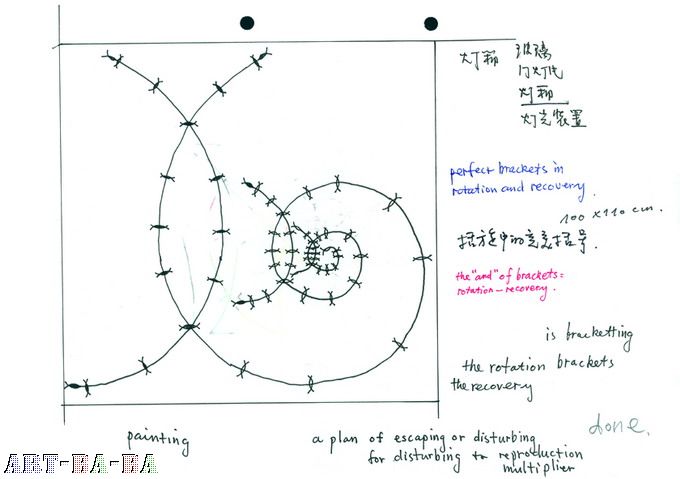 灯箱 玻璃
灯箱
灯光装置
perfect brackets in
rotation and recovery.
100 x 110 cm.
中的完美括号.
the "and" of brackets:
rotation – recovery.
is bracketting
the rotation brackets
the recovery
done.
painting
a plan of escaping or disturbing
for disturbing to reproduction
multiplier
ART-BA-BA